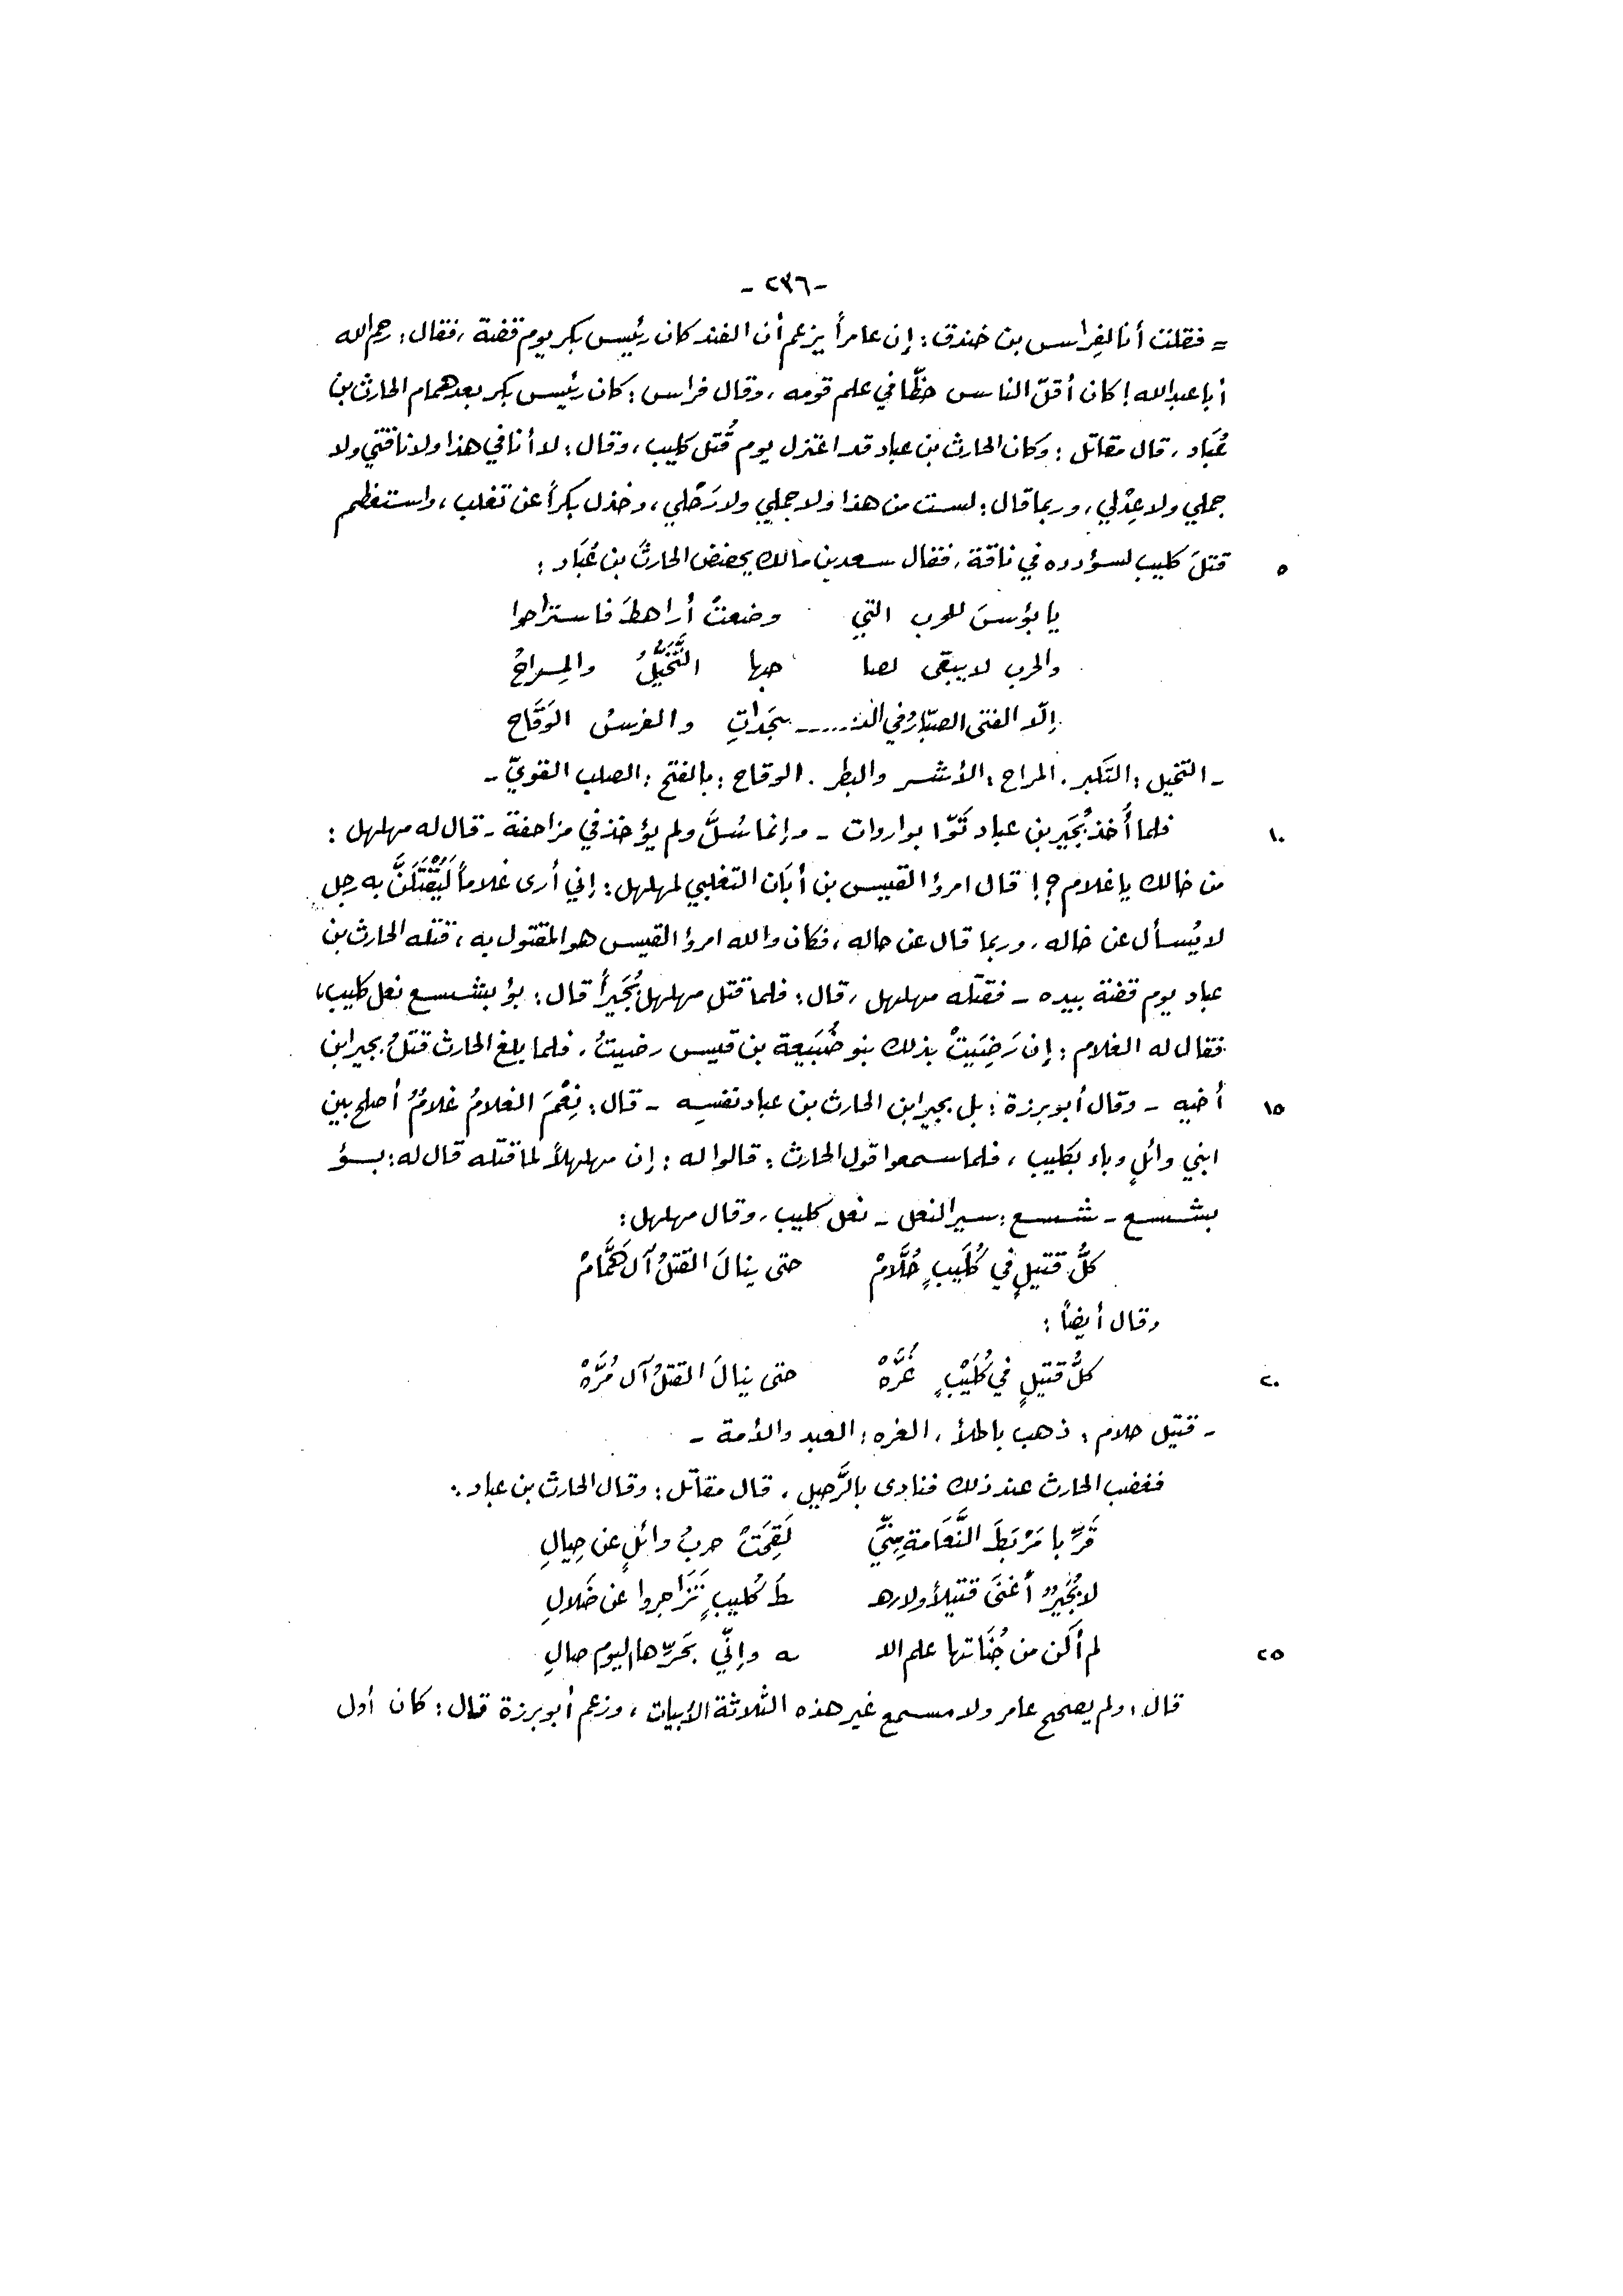 -٢٣٦-
= فقلت أنا لفِراس بن خندق: إن عامراً يزعم أن الفند كان رئيس بكر يوم قضة، فقال: رحم الله
أبا عبد الله! كان أقلّ الناس حظّاً في علم قومه، وقال فراس: كان رئيس بكر بعد همام الحارث بن
عُبَاد، قال مقاتل: وكان الحارث بن عباد قد اعتزل يوم قُتل كليب، وقال: لا أنا في هذا ولا ناقتي ولا
جملي ولا عِدْلي، وربما قال: لست من هذا ولا جملي ولا رَحْلي، وخذل بكراً عن تغلب، واستعظم
٥ قتلَ كليب لسؤدده في ناقة، فقال سعد بن مالك يحضض الحارثَ بن عُبَاد:
يا بؤسَ للحرب التي وضعتْ أراهطَ فاستراحوا
والحرب لا يبقى لصا حبها التَّخَيُّلُ والمِراحُ
إلّا الفتى الصبّارُ في النـ.....ـجَداتِ والفرسُ الوَقَاح
- التخيل: التكبر. المراح: الأشر والبطر. الوقاح: بالفتح: الصلب القويّ -
١٠ فلما أُخذ بُجَير بن عباد تَوّا بواردات - وإنما سُلَّ ولم يؤخذ في مزاحفة - قال له مهلهل:
من خالك يا غلام؟! قال امرؤ القيس بن أبَان التغلبي لمهلهل: إني أرى غلاماً لَيُقْتَلَنَّ به رجل
لا يُسأل عن خاله، وربما قال عن حاله، فكان والله امرؤ القيس هو المقتول به، قتله الحارث بن
عباد يوم قضة بيده - فقتله مهلهل، قال: فلما قتل مهلهل بُجَيراً قال: بؤ بشسع نعل كليب،
فقال له الغلام: إن رَضِيَتْ بذلك بنو ضُبَيعة بن قيس رضيتُ، فلما بلغ الحارث قتلُ بجير ابن
١٥ أخيه - وقال أبو برزة: بل بجير ابن الحارث بن عباد نفسِه - قال: نِعْمَ الغلامُ غلامٌ أصلح بين
ابني وائلٍ وباء بكليب، فلما سمعوا قول الحارث: قالوا له: إن مهلهلاً لما قتله قال له: بــؤ
بشسع - شسع: سير النعل - نعل كليب، وقال مهلهل:
كلُّ قتيلٍ في كُلَيبٍ حُلَّامْ حتى ينالَ القتلُ آل هَمَّامْ
وقال أيضاً:
٢٠ كلُّ قتيلٍ في كُلَيْبٍ غُرَّهْ حتى ينالَ القتلُ آل مُرَّهْ
- قتيل حلام: ذهب باطلاً، الغره: العبد والأمة -
فغضب الحارث عند ذلك فنادى بالرَّحيل، قال مقاتل: وقال الحارث بن عباد:
قَرِّبا مَرْبَطَ النَّعَامةِ مِنّي لَقِحَتْ حربُ وائلٍ عن حِيالِ
لا بُجَيرٌ أغنَى قتيلاً ولا رهـ ـطُ كُليبٍ تَزَاجروا عن ضَلالِ
٢٥ لم أكن من جُنَاتها علم اللـ ـه وإنّي بحَرّها اليوم صالِ
قال: ولم يصحح عامر ولا مسمع غير هذه الثلاثة الأبيات، وزعم أبو برزة قال: كان أول